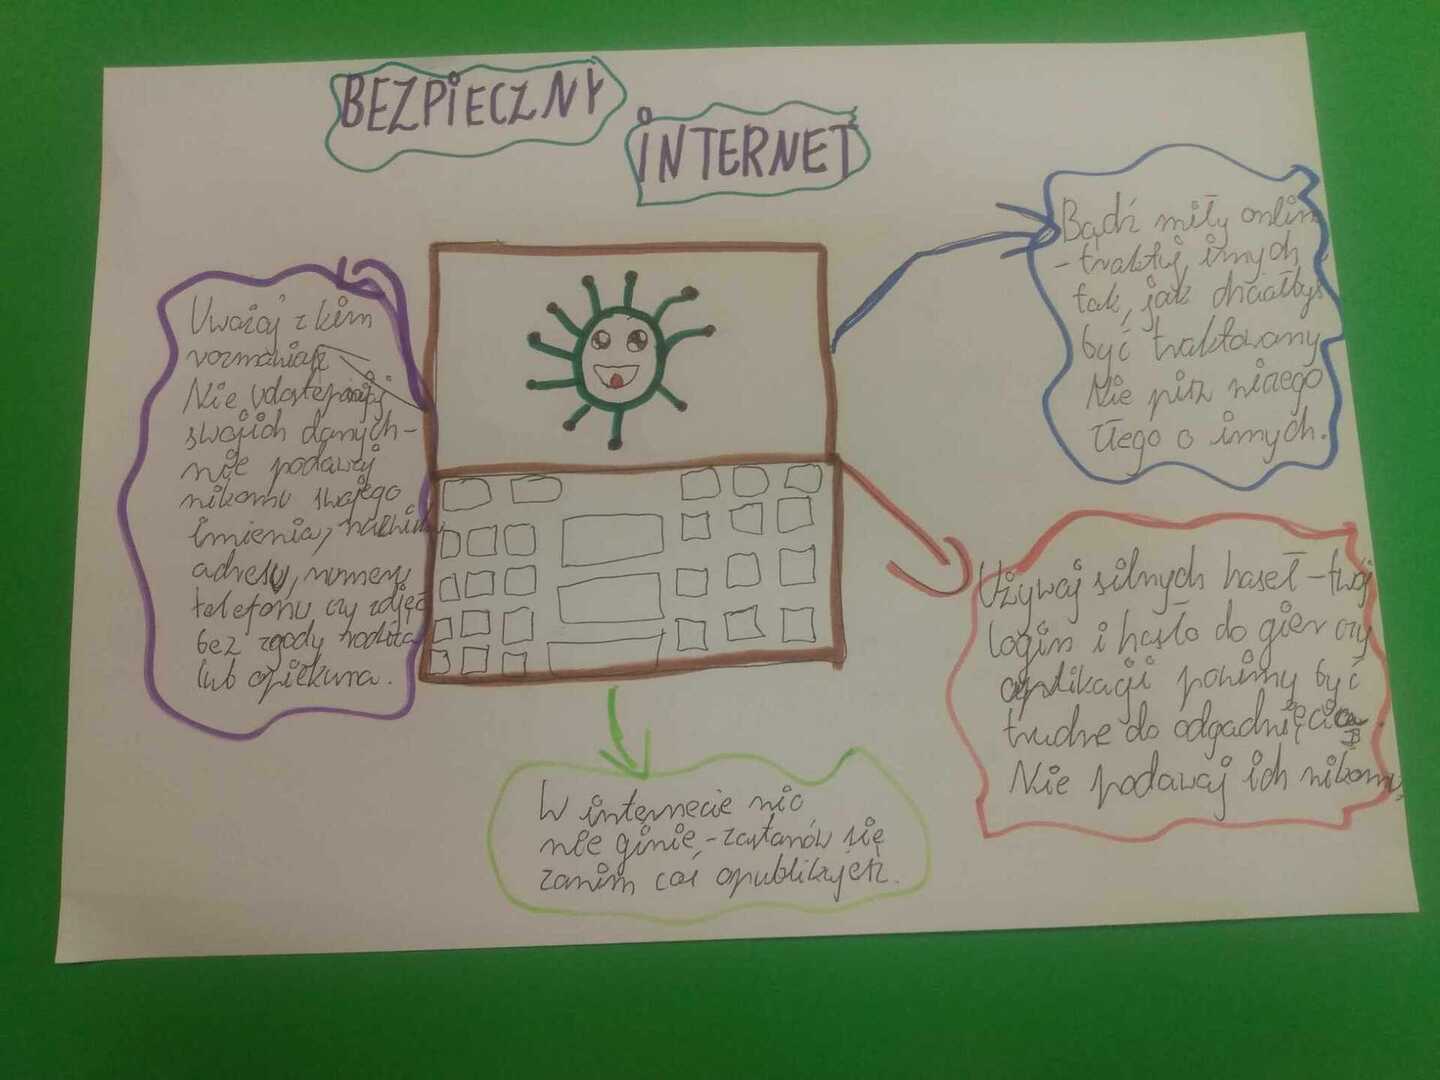 BEZPIECZNY
INTERNET
Uważaj z kim
rozmawiasz
Nie udostępniaj
swojich danych-
nie podawaj
nikomu swojego
imienia, nazwiska
adresu, numeru
telefonu czy zdjęć
bez zgody rodzica
lub opiekuna.
Bądź miły online
- traktuj innych
tak, jak chciałbyś
być traktowany
Nie pisz niczego
złego o innych.
Używaj silnych haseł - twój
login i hasło do gier czy
aplikacji powinny być
trudne do odgadnięcia.
Nie podawaj ich nikomu.
W internecie nic
nie ginie - zastanów się
zanim coś opublikujesz.